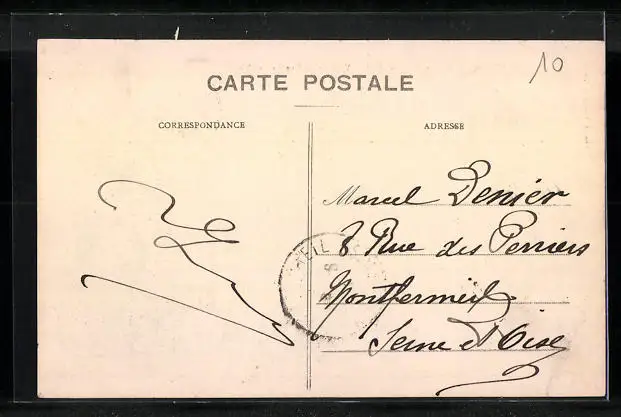 10
CARTE POSTALE
CORRESPONDANCE
ADRESSE
Marcel Denier
8 Rue des Perriers
Montfermeil
Seine et Oise